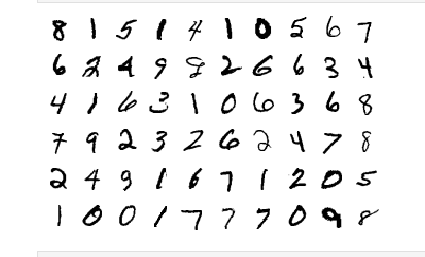 8 1 5 1 4 1 0 5 6 7
6 2 4 9 9 2 6 6 3 4
4 1 6 3 1 0 6 3 6 8
7 9 2 3 2 6 2 4 7 8
2 4 9 1 6 7 1 2 0 5
1 0 0 1 7 7 7 0 9 8